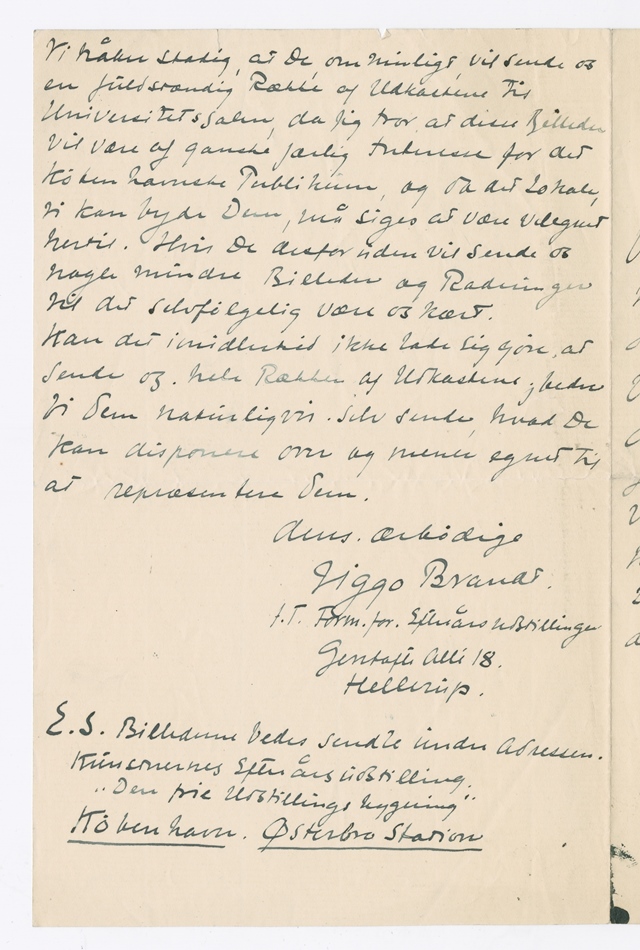 Vi håber stadig, at De om muligt vil sende os
en fuldstændig Række af Udkastene til
Universitetssalen, da jeg tror at disse Billeder
vil være af ganske særlig Interesse for det
Københavnske Publikum, og da det Lokale,
vi kan byde Dem, må siges at være velegnet
hertil. Hvis De desforuden vil sende os
nogle mindre Billeder og Raderinger
vil det selvfølgelig være os kært.
Kan det imidlertid ikke lade sig gøre, at
sende os hele Rækken af Udkastene, beder
vi Dem naturligvis selv sende, hvad De
kan disponere over og mener egnet til
at repræsentere Dem.
Deres ærbødige
Viggo Brandt.
f.T. Form. for. Efterårsudstillingen
Gentofte Allé 18.
Hellerup.
E.S. Billederne bedes sendte under Adressen.
Kunstnernes Efterårsudstilling.
"Den frie Udstillings bygning"
København. Østerbro Station